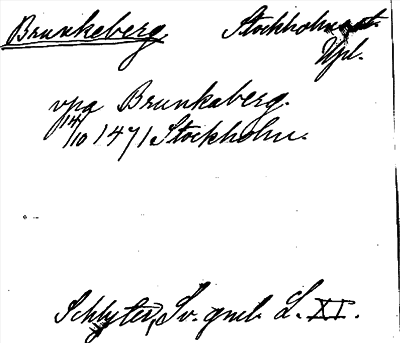 Brunkeberg Stockholms st.
Upl.
vpa Brunkaberg.
14/10 1471 Stockholm.
Schlyter, Sv. gml. L. XI.